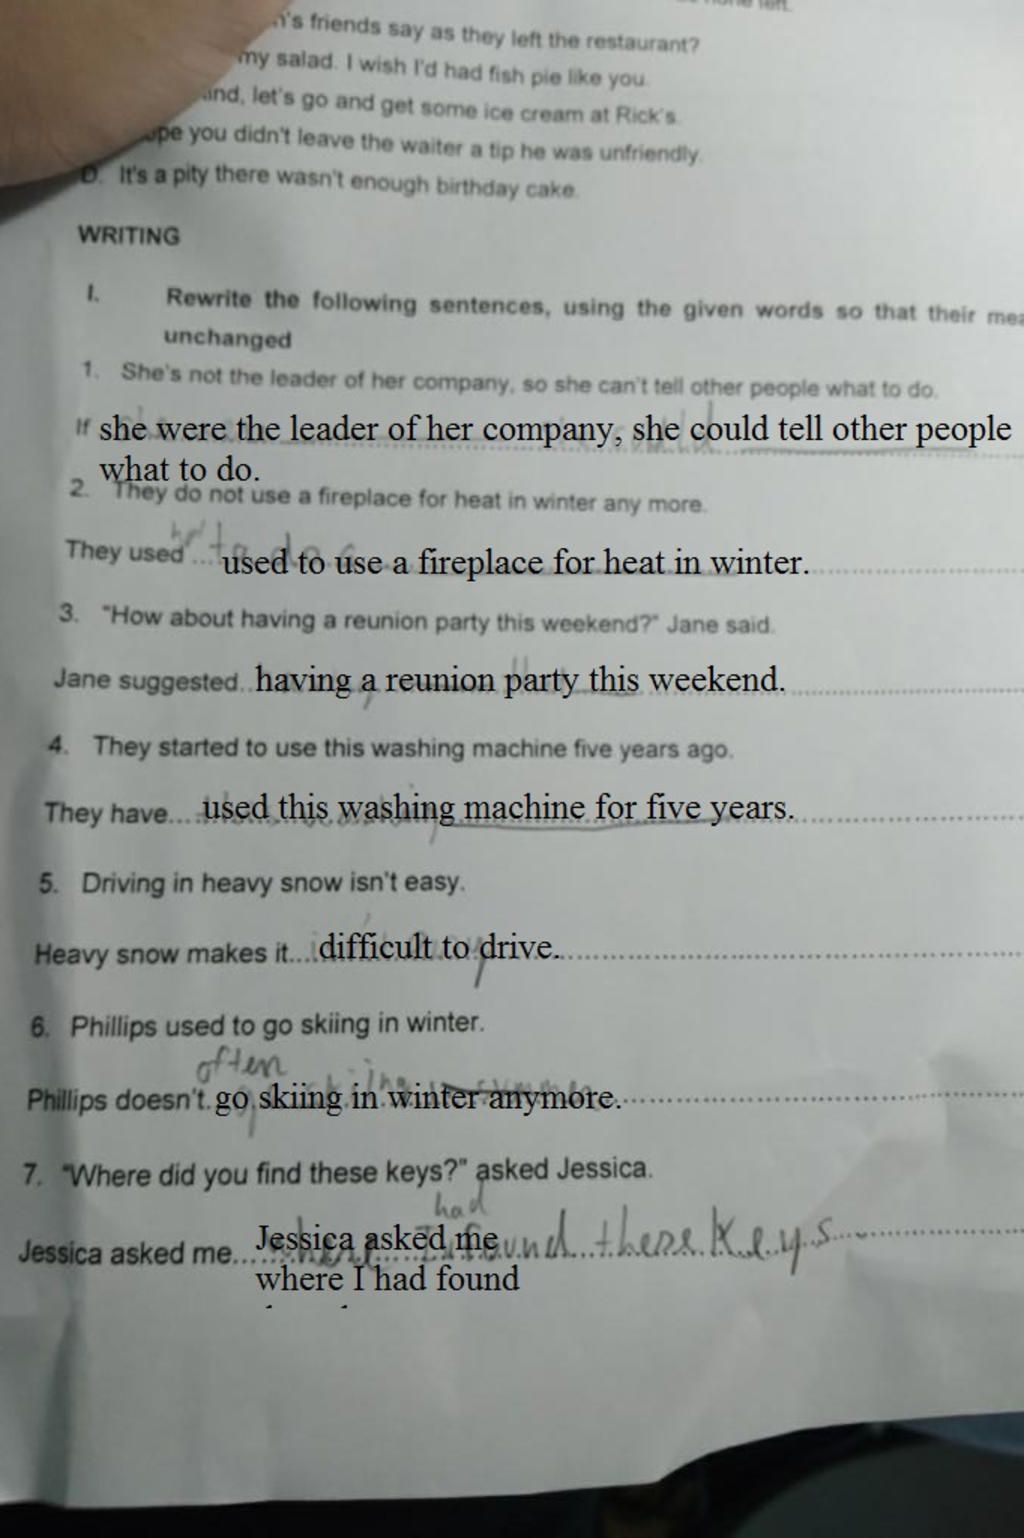 's friends say as they left the restaurant?
my salad. I wish I'd had fish pie like you.
let's go and get some ice cream at Rick's.
you didn't leave the waiter a tip he was unfriendly.
D. It's a pity there wasn't enough birthday cake.
WRITING
I. Rewrite the following sentences, using the given words so that their
unchanged
1. She's not the leader of her company, so she can't tell other people what to do.
If she were the leader of her company, she could tell other people
what to do.
2. They do not use a fireplace for heat in winter any more.
They used ... used to use a fireplace for heat in winter.
3. "How about having a reunion party this weekend?" Jane said.
Jane suggested.. having a reunion party this weekend.
4. They started to use this washing machine five years ago.
They have... used this washing machine for five years.
5. Driving in heavy snow isn't easy.
Heavy snow makes it... difficult to drive.
6. Phillips used to go skiing in winter.
often
Phillips doesn't. go skiing in winter anymore.
7. "Where did you find these keys?" asked Jessica.
had
Jessica asked me... Jessica asked me found these keys
where I had found